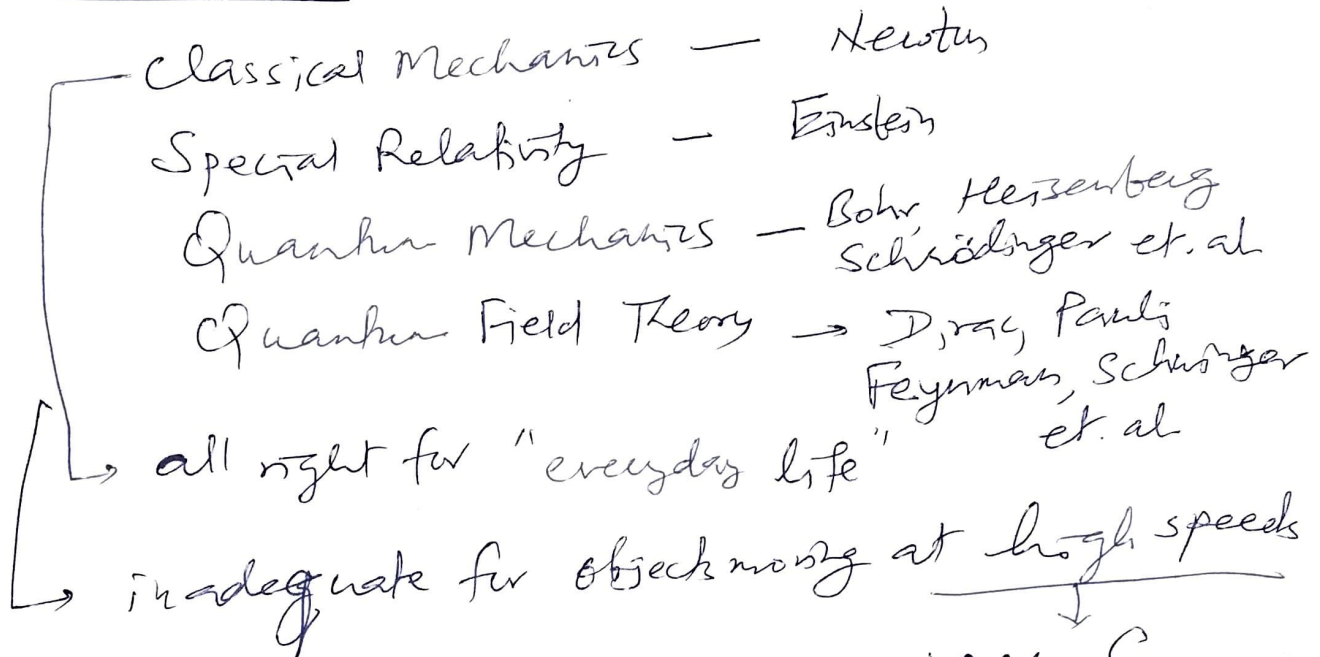 Classical Mechanics — Newton
Special Relativity — Einstein
Quantum Mechanics — Bohr, Heisenberg
Schrödinger et. al
Quantum Field Theory → Dirac, Pauli
Feynman, Schwinger
et. al
→ all right for "everyday life"
→ inadequate for objects moving at high speeds